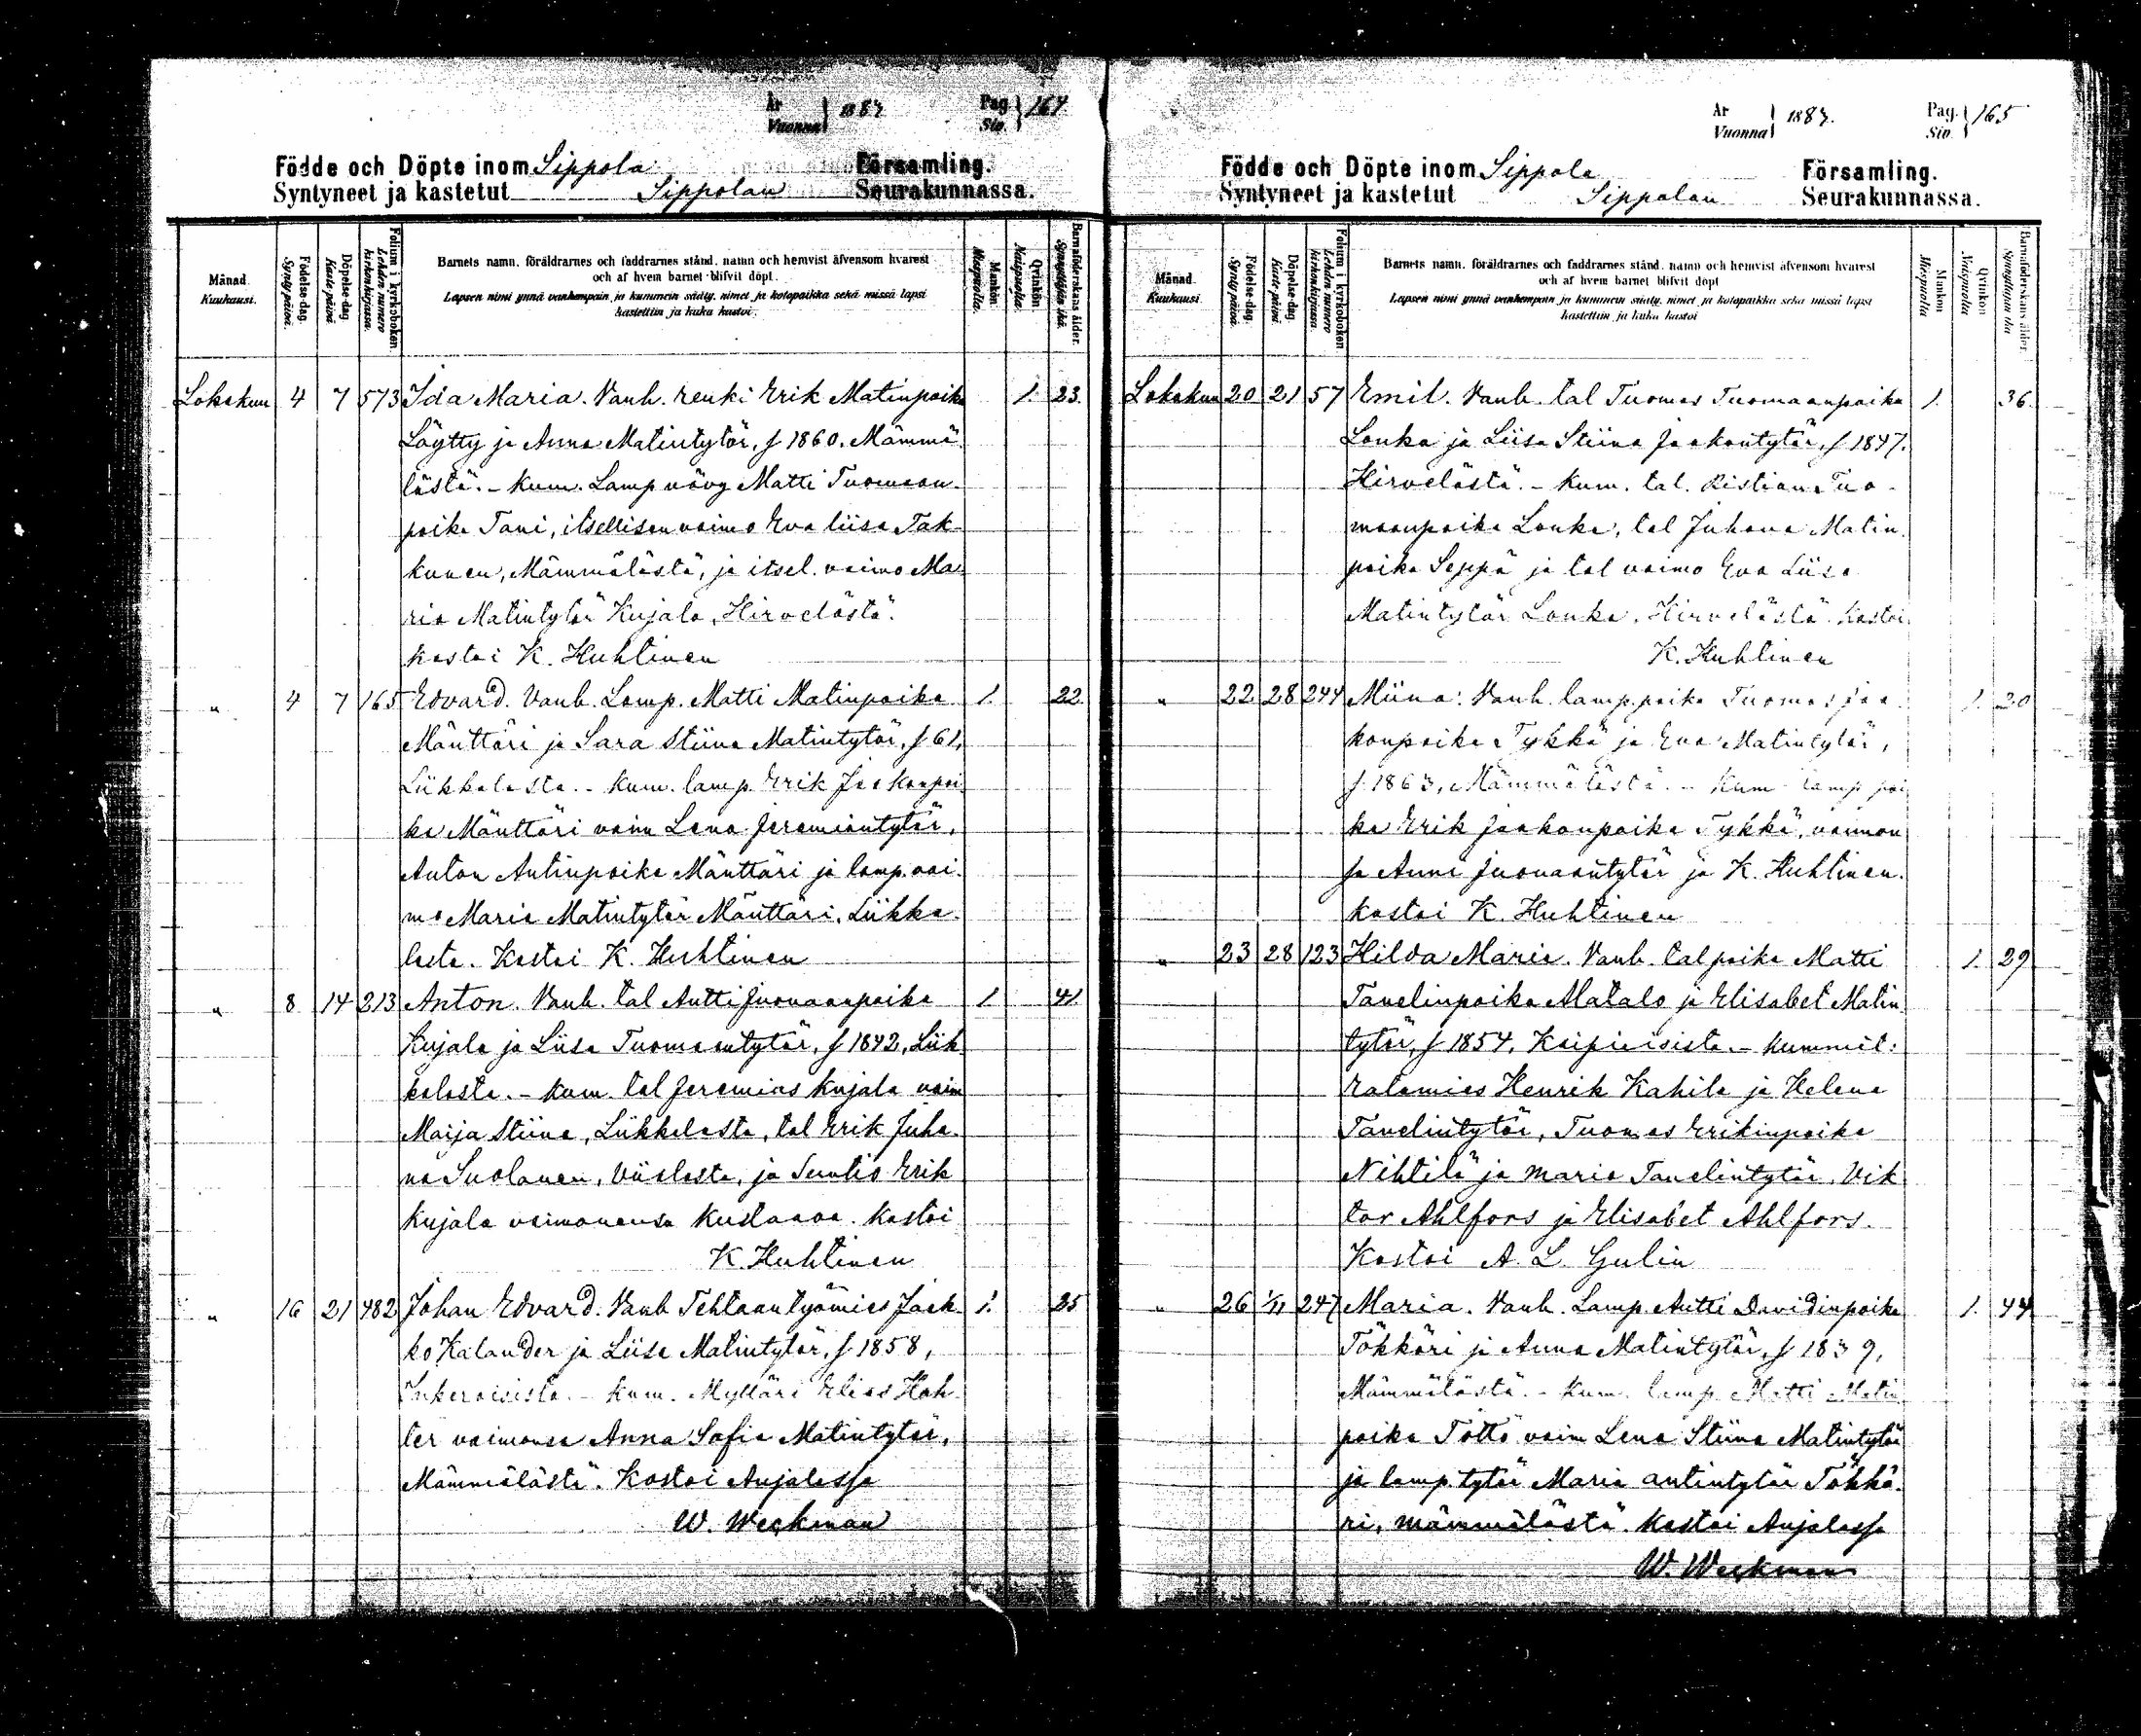 År Vuonna 1883 Pag. Siv. 164
Födde och Döpte inom Sippola Församling.
Syntyneet ja kastetut Sippolan Seurakunnassa.
Månad. Kuukausi.
Födelse-dag. Synty-päivä.
Döpelse-dag Kaste-päivä
Folium i kyrkoboken. Lehden numero kirkonkirjassa.
Barnets namn, föräldrarnes och faddrarnes stånd, namn och hemvist äfvensom hvarest
och af hvem barnet blifvit döpt.
Lapsen nimi ynnä vanhempain ja kummein sääty, nimet ja kotopaikka sekä missä lapsi
kastettiin ja kuka kastoi.
Mankön. Miespuolta.
Qvinkön. Naispuolta.
Barnaföderskans ålder. Synnyttäjän ikä.
Lokakuu 4 7 573 Ida Maria. Vanh. renki Erik Matinpoika 1. 23.
Löytty ja Anna Matintytär, f 1860. Mämmä
lästä. - Kum. Lampvävy Matti Tuomaan
poika Tani, itsellisen vaimo Eva Liisa Tak-
kunen, Mämmälästä, ja itsel. vaimo Ma-
ria Matintytär Kujala, Hirvelästä.
kastoi K. Huhtinen
" 4 7 165 Edvard. Vanh. Lamp. Matti Matinpoika 1. 22
Mänttäri ja Sara Stiina Matintytär, f 61,
Liikkalasta. - Kum. lamp. Erik Jaakonpoi
ka Mänttäri vaim Lena Jeremiantytär,
Anton Antinpoika Mänttäri ja lamp. vai-
mo Maria Matintytär Mänttäri, Liikka-
lasta. Kastoi K. Huhtinen
" 8 14 213 Anton. Vanh. tal Antti Juonaanpoika 1 41.
Kujala ja Liisa Tuomaantytär, f 1842, Liik
kalasta. - Kum. tal Jeremias Kujala vaim
Maija Stiina, Liikkalasta, tal Erik Juha-
na Suolanen, Viialasta, ja Suntio Erik
Kujala vaimonensa Kustaava. Kastoi
K. Huhtinen
" 16 21 482 Johan Edvard. Vanh Tehtaantyömies Jaak- 1. 25
ko Kalander ja Liisa Matintytär, f. 1858,
Inkeroisista. - Kum. Mylläri Elias Hah-
ler vaimonsa Anna Sofia Matintytär,
Mämmälästä. Kastoi Anjalassa
W. Weckman
År Vuonna 1883. Pag. Siv. 165
Födde och Döpte inom Sippola Församling.
Syntyneet ja kastetut Sippolan Seurakunnassa.
Månad. Kuukausi.
Födelse-dag. Synty-päivä.
Döpelse-dag. Kaste-päivä
Folium i kyrkoboken Lehden numero kirkonkirjassa
Barnets namn, föräldrarnes och faddrarnes stånd, namn och hemvist äfvensom hvarest
och af hvem barnet blifvit döpt
Lapsen nimi ynnä vanhempain ja kummein sääty, nimet ja kotopaikka sekä missä lapsi
kastettiin ja kuka kastoi
Mankön Miespuolta
Qvinkön Naispuolta
Barnaföderskans ålder Synnyttäjän ikä
Lokakuu 20 21 57 Emil. Vanh. tal Tuomas Tuomaanpoika 1. 36.
Louka ja Liisa Stiina Jaakontytär, f 1847.
Hirvelästä. - Kum. tal. Kristian Tuo-
maanpoika Louka, tal Juhana Matin-
poika Seppä ja tal vaimo Eva Liisa
Matintytär Louka, Hirvelästä. Kastoi
K. Huhtinen
" 22 28 244 Miina. Vanh. lamp. poika Tuomas Jaa 1. 20
konpoika Tykkä ja Eva Matintytär,
f 1863, Mämmälästä. - Kum lamp poi
ka Erik Jaakonpoika Tykkä, vaimon
sa Anni Juonaantytär ja K. Huhtinen.
kastoi K. Huhtinen
" 23 28 123 Hilda Maria. Vanh. tal poika Matti 1. 29
Tanelinpoika Alatalo ja Elisabet Matin
tytär, f 1854, Kaipiaisista. - Kummit:
ratamies Henrik Kahila ja Helena
Tanelintytär, Tuomas Erikinpoika
Nihtilä ja Maria Tanelintytär, Vik
tor Ahlfors ja Elisabet Ahlfors.
Kastoi A. L. Gulin
" 26 1/11 247 Maria. Vanh. Lamp. Antti Davidinpoika 1. 44
Tökkäri ja Anna Matintytär, f 1839,
Mämmälästä. - Kum. lamp. Matti Matin
poika Töttö vaim Lena Stiina Matintytär
ja lamp. tytär Maria antintytär Tökkä-
ri, Mämmälästä. kastoi Anjalassa
W. Weckman